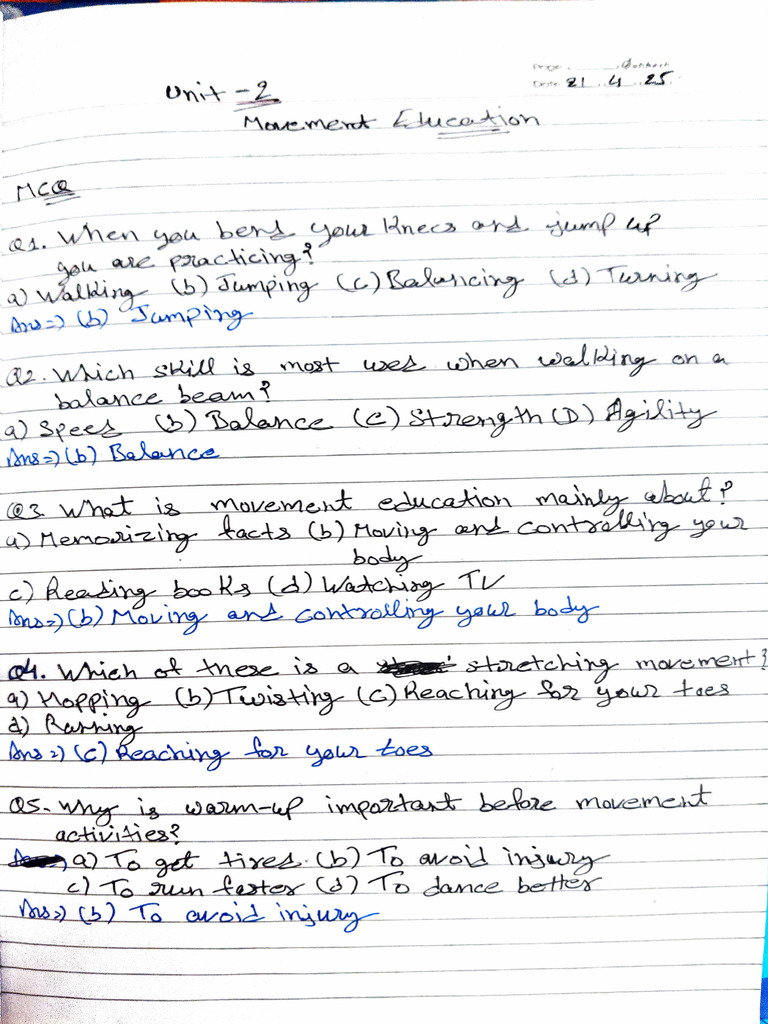 Date 21.4.25
Unit-2
Movement Education
MCQ
Q1. When you bend your knees and jump up
you are practicing?
a) Walking (b) Jumping (c) Balancing (d) Turning
Ans=> (b) Jumping
Q2. Which skill is most used when walking on a
balance beam?
a) Speed (b) Balance (c) Strength (D) Agility
Ans=> (b) Balance
Q3 What is movement education mainly about?
a) Memorizing facts (b) Moving and controlling your
body
c) Reading books (d) Watching TV
Ans=> (b) Moving and controlling your body
Q4. Which of these is a stretching movement?
a) Hopping (b) Twisting (c) Reaching for your toes
d) Running
Ans=> (c) Reaching for your toes
Q5. Why is warm-up important before movement
activities?
a) To get tired (b) To avoid injury
c) To run faster (d) To dance better
Ans=> (b) To avoid injury